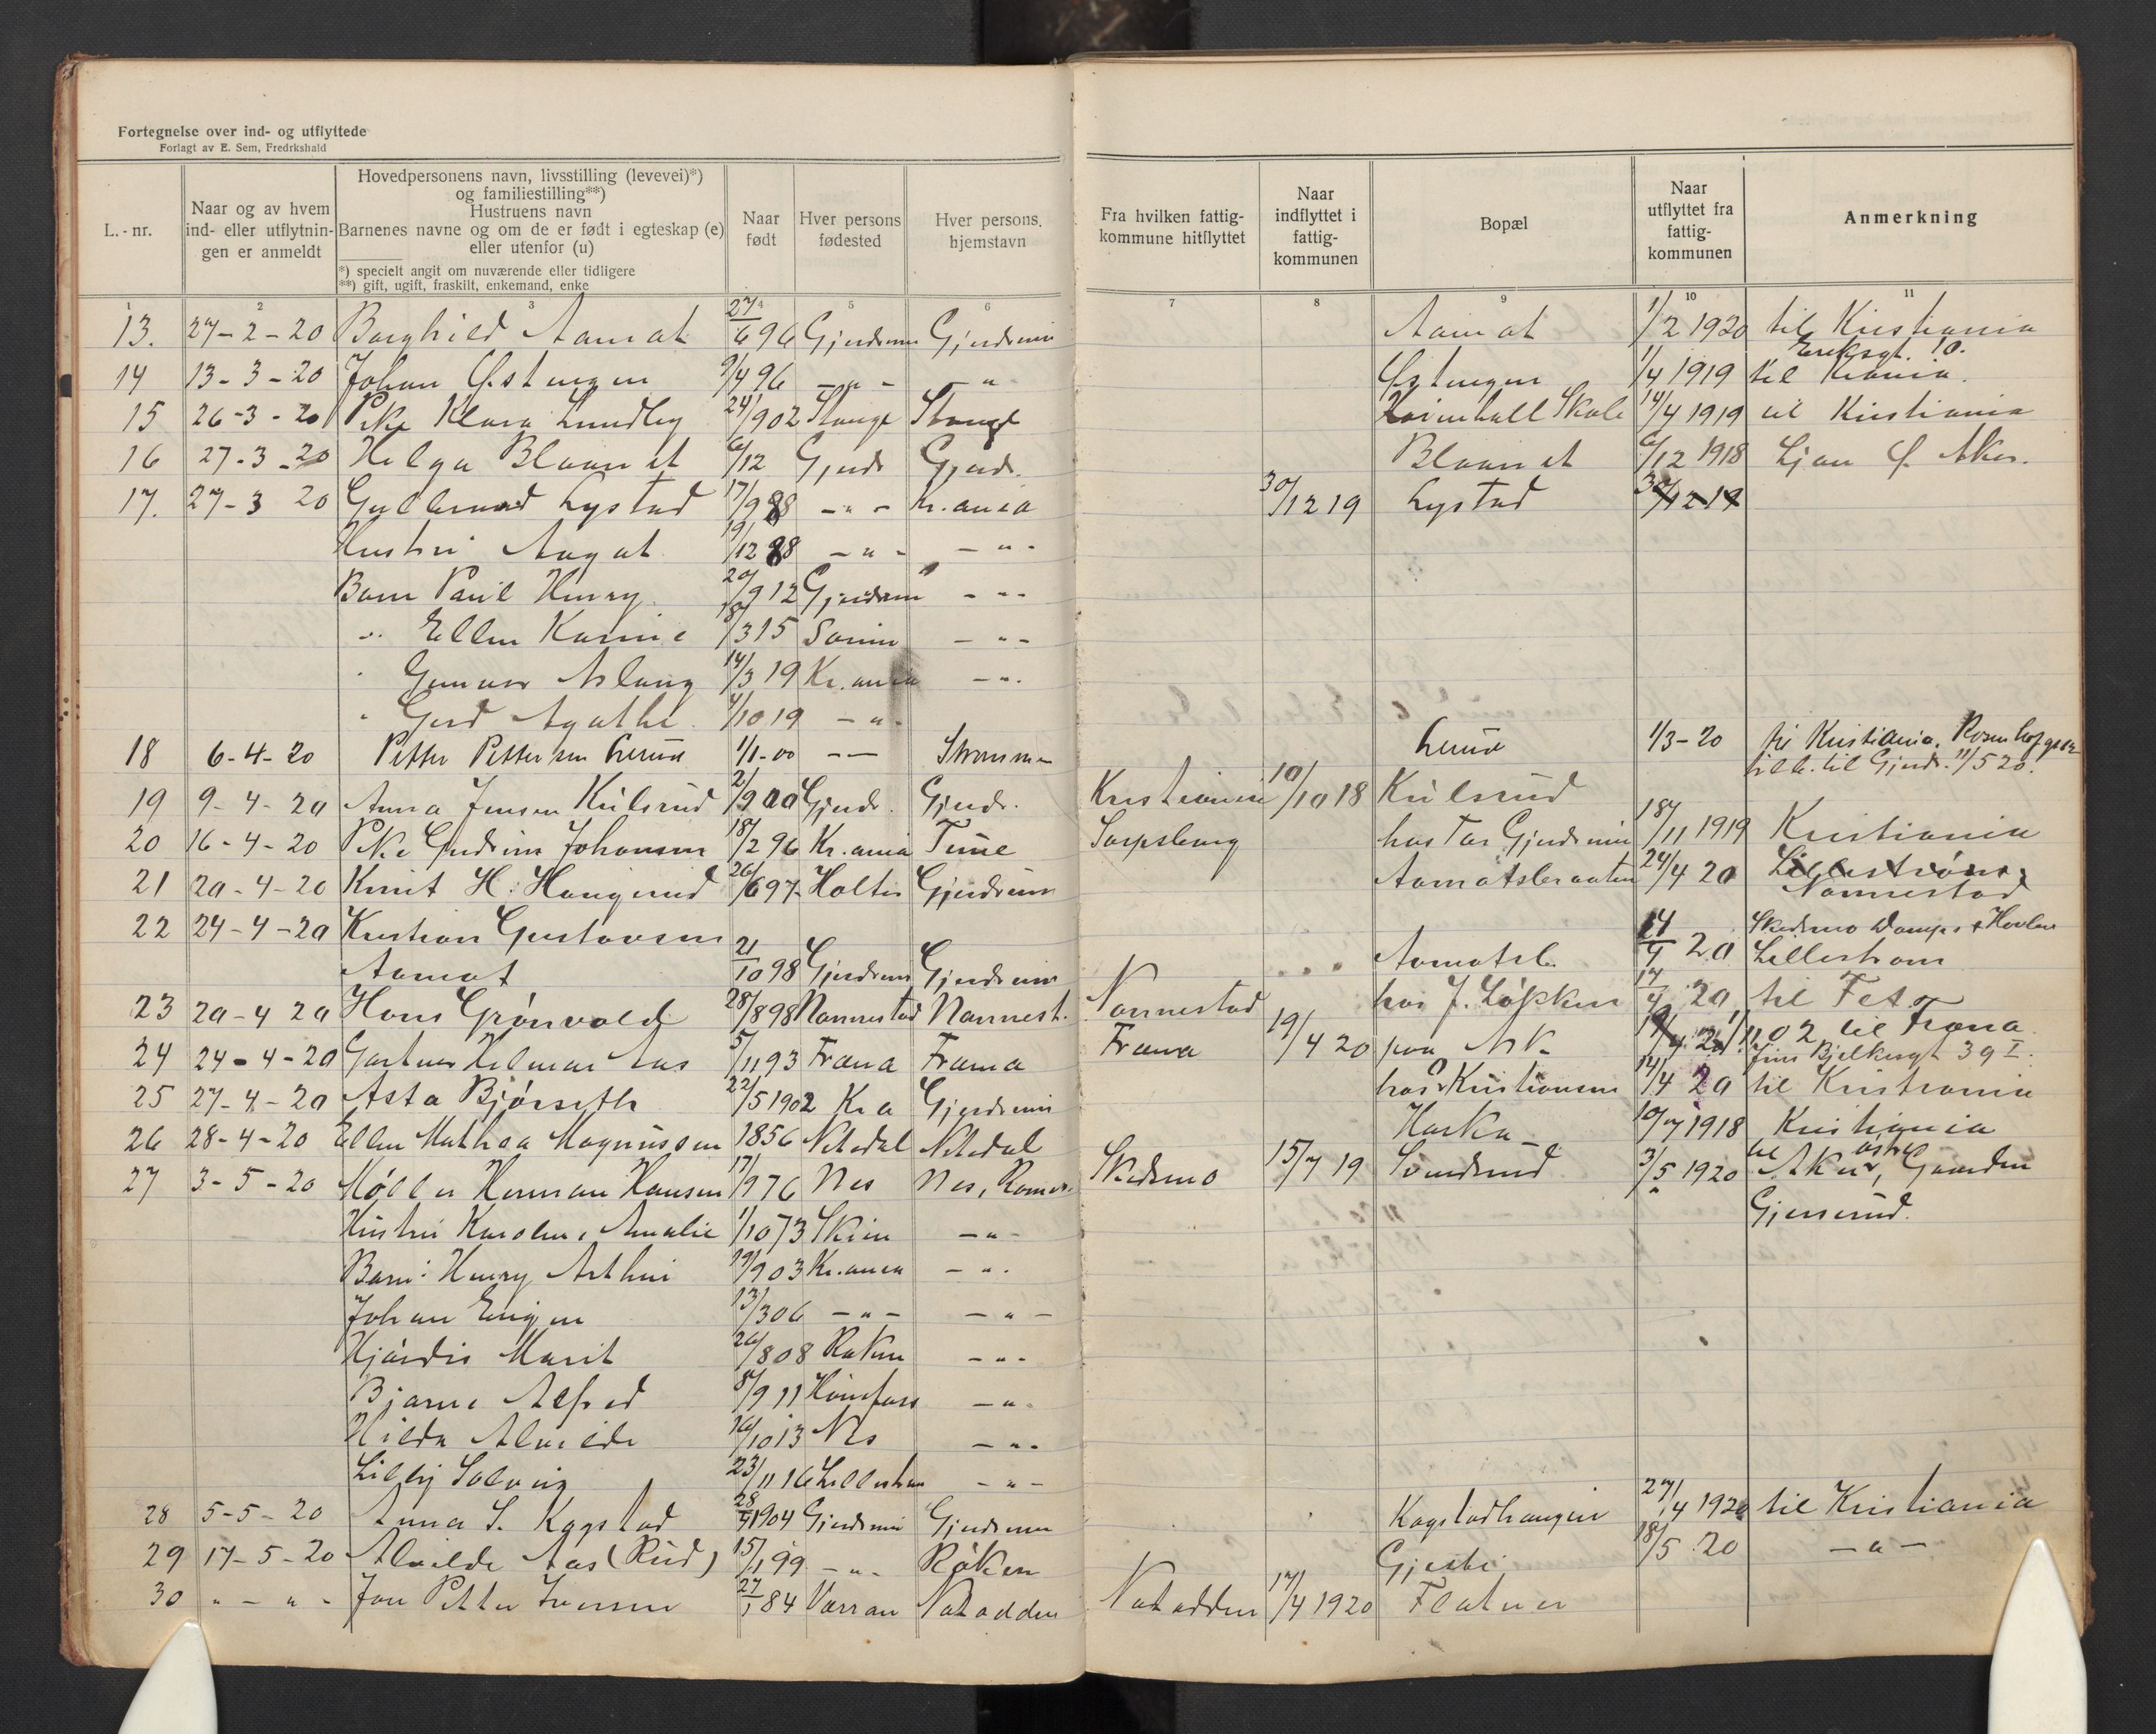 Fortegnelse over ind- og utflyttede
Forlagt av E. Sem, Fredrkshald
L.-nr.
Naar og av hvem ind- eller utflytningen er anmeldt
Hovedpersonens navn, livsstilling (levevei)*)
og familiestilling**)
Hustruens navn
Barnenes navne og om de er født i egteskap (e)
eller utenfor (u)
*) specielt angit om nuværende eller tidligere
**) gift, ugift, fraskilt, enkemand, enke
Naar født
Hver persons fødested
Hver persons. hjemstavn
Fra hvilken fattigkommune hitflyttet
Naar indflyttet i fattigkommunen
Bopæl
Naar utflyttet fra fattigkommunen
Anmerkning
1 2 3 4 5 6 7 8 9 10 11
13. 27-2-20 Borghild Aamat 27/6 96 Gjerdrum Gjerdrum Aamat 1/2 1920 til Kristiania
14 13-3-20 Johan Østengen 9/4 96 -"- " Østengen 1/4 1919 til Krania. Eriksgt. 10.
15 26-3-20 Pike Klara Lundby 24/ 902 Stange Stange Skole 14/4 1919 til Kristiania
16 27-3-20 Helga Blaamat 6/12 Gjerdr Gjerdr. Blaamat 6/12 1918 Ljan Ø. Aker.
17. 27-3 20 Gullbrand Lystad 17/9 88 -"- Kr.ania 30/12 19 Lystad 30/12 19
Hustru Aagot 19/12 88 -"- -"-
Barn Paul Henry 20/9 12 Gjerdrum -"-
" Ellen Karine 18/3 15 Sørum -"-
" Gunnar Aslaug 14/3 19 Kr.ania -"-
" Gerd Agathe 1/10 19 -"-
18 6-4-20 Petter Pettersen Lerud 1/1-00 -- Strømmen Lerud 1/3-20 til Kristiania. Rosenhofgaten
tilb. til Gjerdr. 11/5 20.
19 9-4-20 Anna Jensen Kulsrud 2/9 00 Gjerdr. Gjerdr. Kristiania 10/10 18 Kulsrud
20 16-4-20 Pike Gudrun Johansen 18/2 96 Kr.ania Tune Sarpsborg hos Tor Gjerdrum 18/11 1919 Kristiania
21 20-4-20 Knut H. Haugerud 26/6 97 Holter Gjerdrum Aamotsbraaten 24/4 20 Lillestrøm, Nannestad
22 24-4-20 Kristian Gustavsen
Aamot 21/10 98 Gjerdrum Gjerdrum Aamotsb. 20 Skedsmo Damps & Høvleri
Lillestrøm
23 20-4 20 Hans Grønvold 28/8 98 Nannestad Nannest. Nannestad hos J. Løkken 17/4 20 til Fet
24 24-4-20 Gartner Hilmar Aas 5/11 93 Frana Frana Frana 19/4 20 paa Ask 1/11 02 til Frana
Jens Bjelkesgt 39 I.
25 27-4-20 Asta Bjørseth 22/5 1902 Kra Gjerdrum hos Kristiansen 14/4 20 til Kristiania
26 28-4-20 Ellen Mathea Magnussen 1856 Nitedal Nitedal Haska 10/7 1918 Kristiania
27 3-5-20 Møller Herman Hansen 17/ 76 Nes Nes, Romer. Skedsmo 15/7 19 3/5 1920 til østre Aker, Gaarden
Gjerserud.
Hustru Karoline Amalie 1/10 73 Skien -"-
Barn: Henry Arthur 903 Kr.ania -"-
Johan Eugen 13/3 06 -"- -"-
Hjørdis Marit 26/8 08 Røken -"-
Bjarne Alfred 8/9 11 Hønefoss -"-
Hilda Alvilde 16/10 13 Nes -"-
Lilly Solveig 23/11 16 Lillestrøm -"-
28 5-5-20 Anna S. Kogstad 28/ 1904 Gjerdrum Gjerdrum Kogstadhaugen 27/4 1920 til Kristiania
29 17-5-20 Alvilde Aas (Rud) 15/1 99 -"- Røken Gjesti 18/5 20 -"-
30 "-"- Jon Petter Iversen 27/1 84 Varran Notodden Notodden 17/4 1920 Flatner